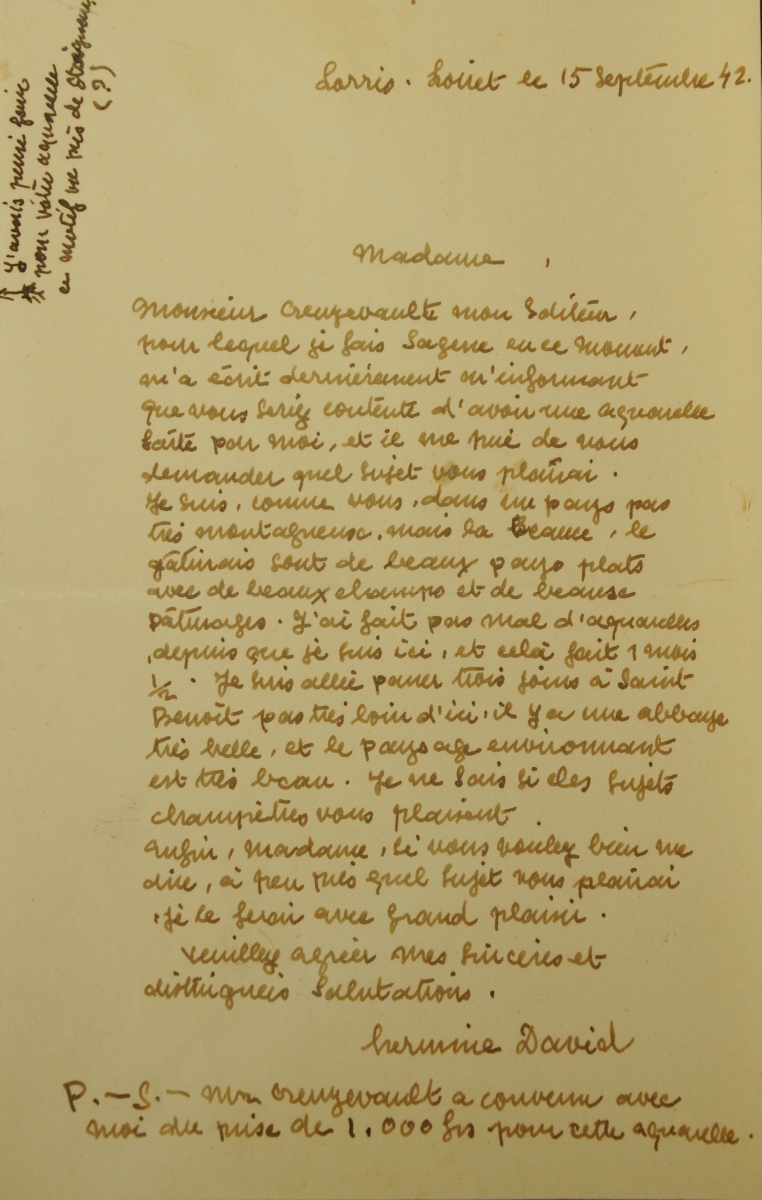 Lorris. Loiret le 15 Septembre 42.
Madame,
Monsieur Creuzevault mon Editeur,
pour lequel je fais Sagesse en ce moment,
m'a écrit dernièrement m'informant
que vous seriez contente d'avoir une aquarelle
faite par moi, et il me prie de vous
demander quel sujet vous plairai.
Je suis, comme vous, dans un pays pas
très montagneux, mais la Beauce, le
gâtinais sont de beaux pays plats
avec de beaux champs et de beaux
pâturages. J'ai fait pas mal d'aquarelles
, depuis que je suis ici, et celà fait 1 mois
1/2. Je suis allée passer trois jours à Saint
Benoît pas très loin d'ici, il y a une abbaye
très belle, et le paysage environnant
est très beau. Je ne sais si des sujets
champêtres vous plaisent.
Enfin, Madame, si vous voulez bien me
dire, à peu près quel sujet vous plairai
, je le ferai avec grand plaisir.
Veuillez agréer mes sincères et
distinguées salutations.
hermine David
P.-S.- Mr Creuzevault a convenu avec
moi du prise de 1.000 frs pour cette aquarelle.
J'avais pensé faire
pour votre aquarelle
ce motif vu près de
(?)